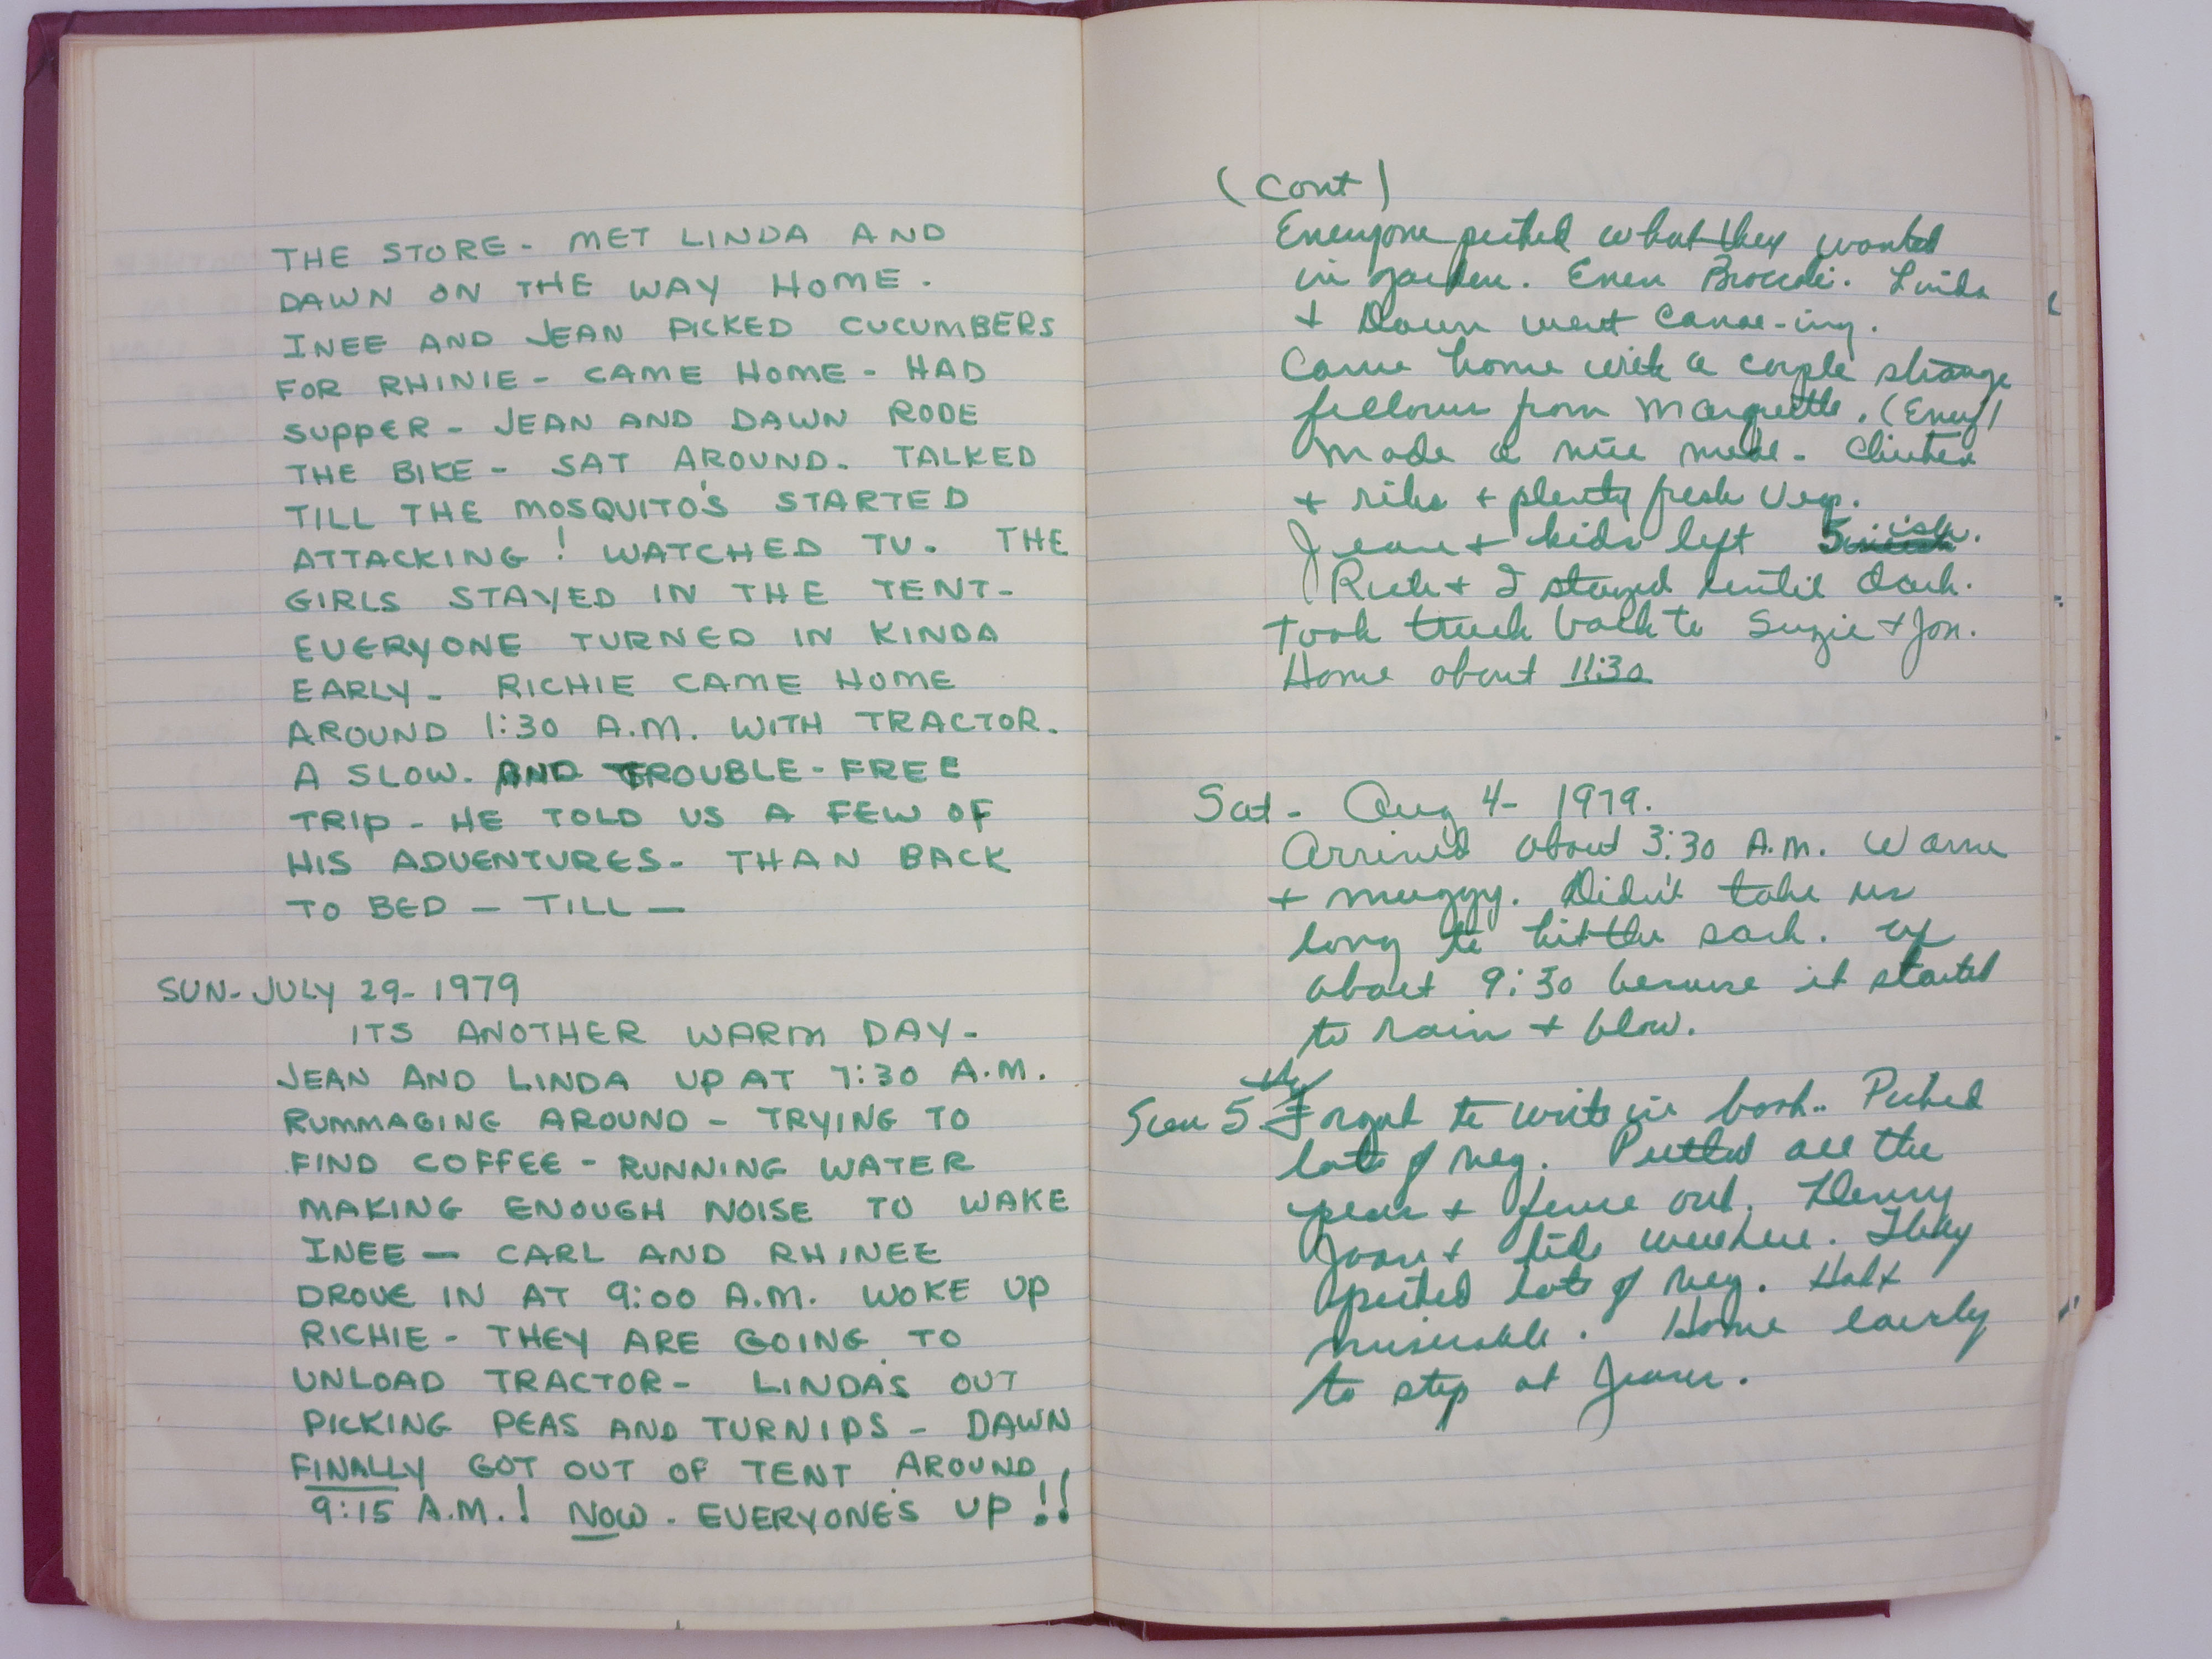 THE STORE - MET LINDA AND
DAWN ON THE WAY HOME.
INEE AND JEAN PICKED CUCUMBERS
FOR RHINIE - CAME HOME - HAD
SUPPER - JEAN AND DAWN RODE
THE BIKE - SAT AROUND. TALKED
TILL THE MOSQUITO'S STARTED
ATTACKING! WATCHED TV. THE
GIRLS STAYED IN THE TENT -
EVERYONE TURNED IN KINDA
EARLY - RICHIE CAME HOME
AROUND 1:30 A.M. WITH TRACTOR.
A SLOW. AND TROUBLE-FREE
TRIP - HE TOLD US A FEW OF
HIS ADVENTURES - THAN BACK
TO BED — TILL —
SUN - JULY 29 - 1979
ITS ANOTHER WARM DAY -
JEAN AND LINDA UP AT 7:30 A.M.
RUMMAGING AROUND - TRYING TO
FIND COFFEE - RUNNING WATER
MAKING ENOUGH NOISE TO WAKE
INEE — CARL AND RHINEE
DROVE IN AT 9:00 A.M. WOKE UP
RICHIE - THEY ARE GOING TO
UNLOAD TRACTOR - LINDA'S OUT
PICKING PEAS AND TURNIPS - DAWN
FINALLY GOT OUT OF TENT AROUND
9:15 A.M.! NOW. EVERYONE'S UP!!
(cont)
Everyone picked what they wanted
in garden. Even Broccoli. Linda
+ Dawn went canoe-ing.
Came home with a couple strange
fellows from Marquette.
Made a nice meal - Chicken
+ ribs + plenty fresh veg.
Jean + kids left 5 ish.
Rich + I stayed until dark.
Took truck back to Suzie + Jon.
Home about 11:30
Sat - Aug 4 - 1979.
Arrived about 3:30 A.M. Warm
+ muggy. Didn't take us
long to hit the sack. up
about 9:30 because it started
to rain + blow.
Sun 5th Forgot to write in book.. Picked
lots of veg. Pulled all the
peas + fence out. Denny
Joan + kids were here. They
picked lots of veg. Hot +
miserable. Home early
to stop at Jeans.